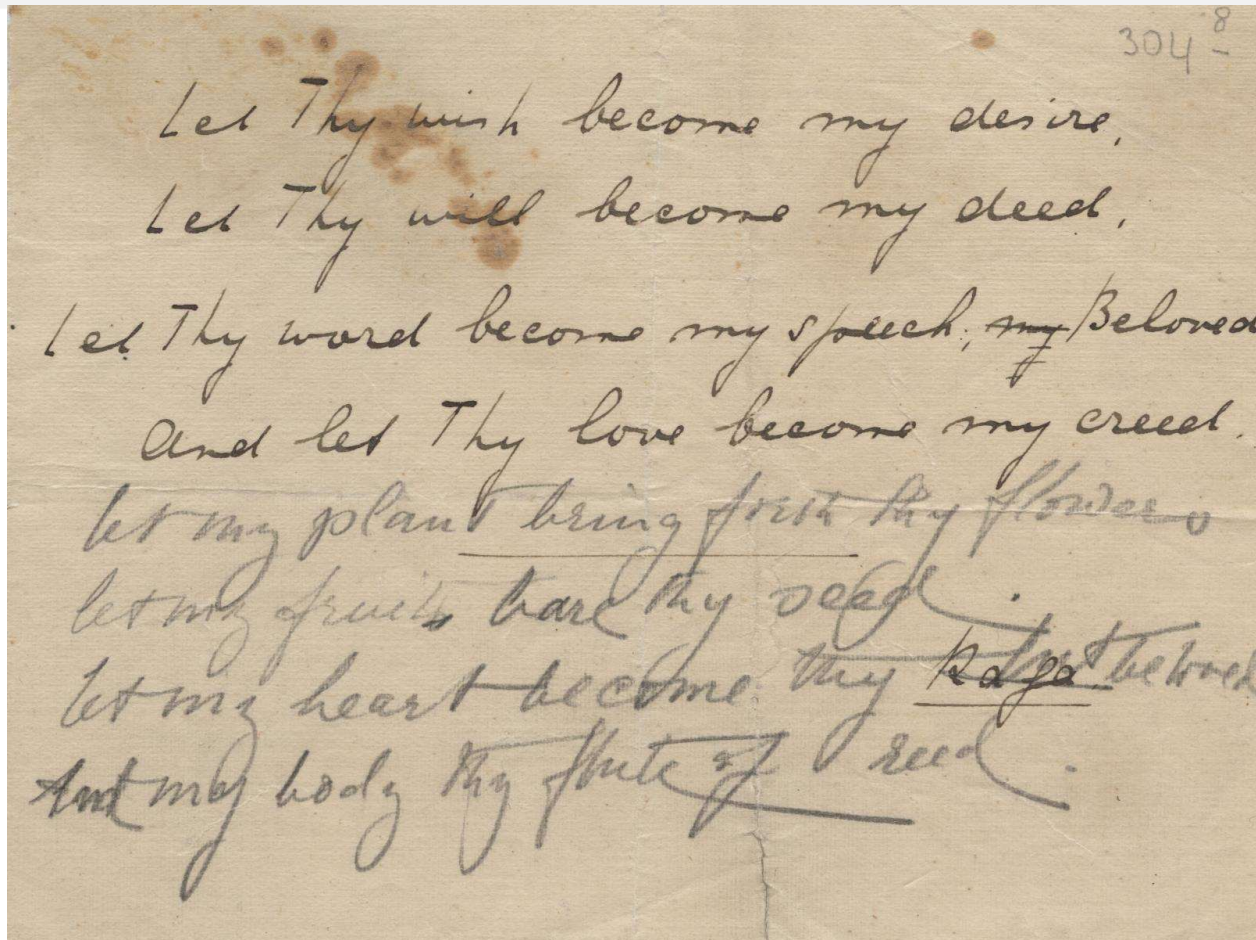 304 8
Let Thy wish become my desire,
Let Thy will become my deed,
Let Thy word become my speech, my Beloved
And let Thy love become my creed.
let my plant bring forth thy flowers
let my fruits bare thy seed.
let my heart become thy Raga beloved
And my body thy flute of reed.